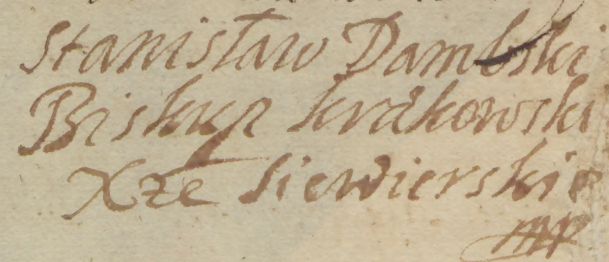 Stanisław Dambski
Biskup krakowski
Xże Siewierskie
mp